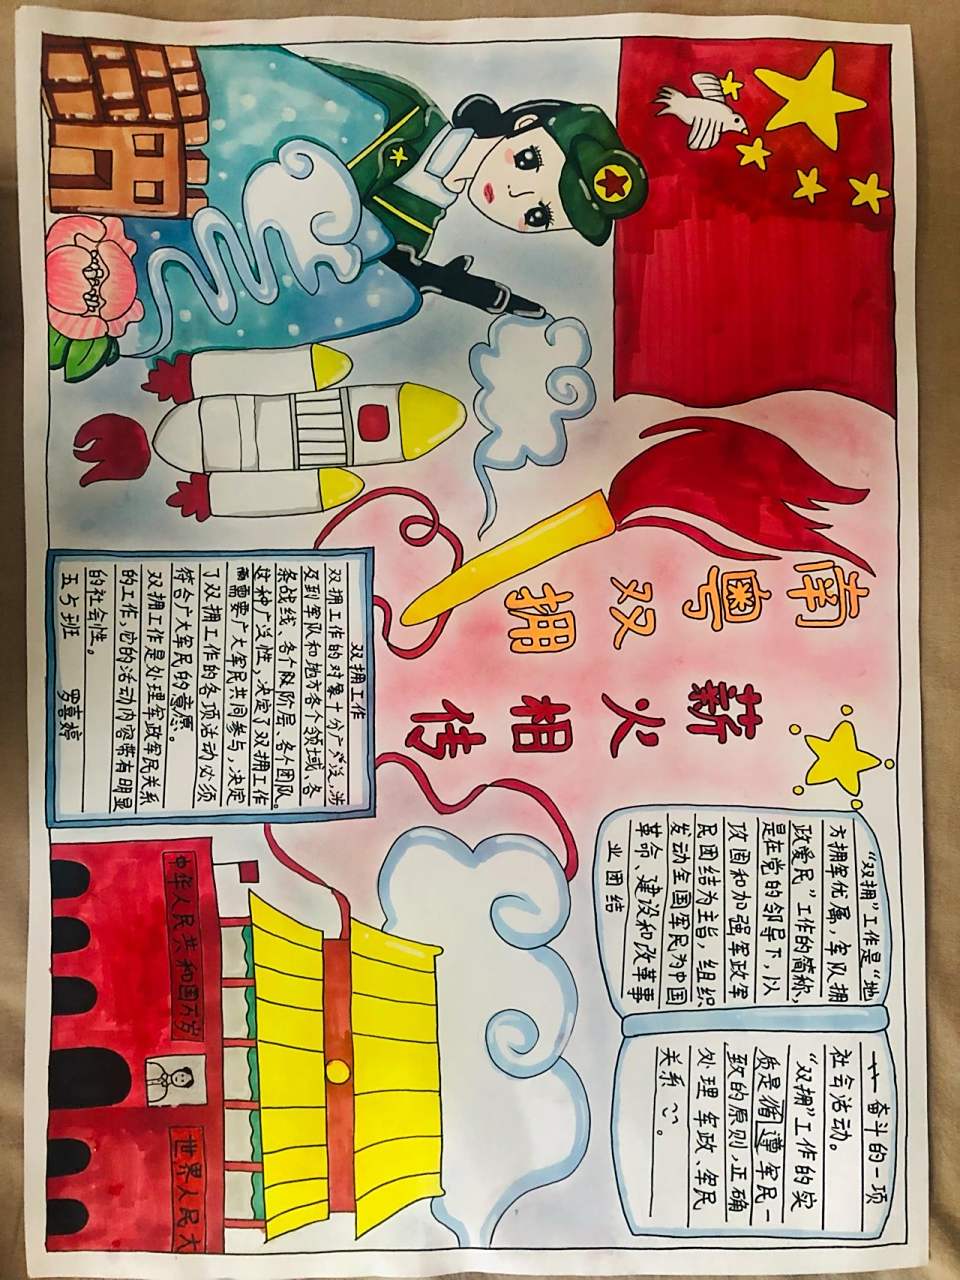 南粤双拥
薪火相传
“双拥”工作是“地
方拥军优属,军队拥
政爱民”工作的简称,
是在党的领导下,以
巩固和加强军政军
民团结为主旨,组织
发动全国军民为中国
革命、建设和改革事
业团结
奋斗的一项
社会活动。
“双拥”工作的实
质是循遵军民一
致的原则,正确
处理军政、军民
关系
双拥工作
双拥工作的对象十分广泛,涉
及到军队和地方各个领域、各
条战线、各个阶层、各个团队。
这种广泛性,决定了双拥工作
而需要广大军民共同参与,决定
了双拥工作的各项活动必须
符合广大军民的意愿。
双拥工作是处理军政军民关系
的工作,它的活动内容带有明显
的社会性。
五5班 罗喜婷
中华人民共和国万岁
世界人民大